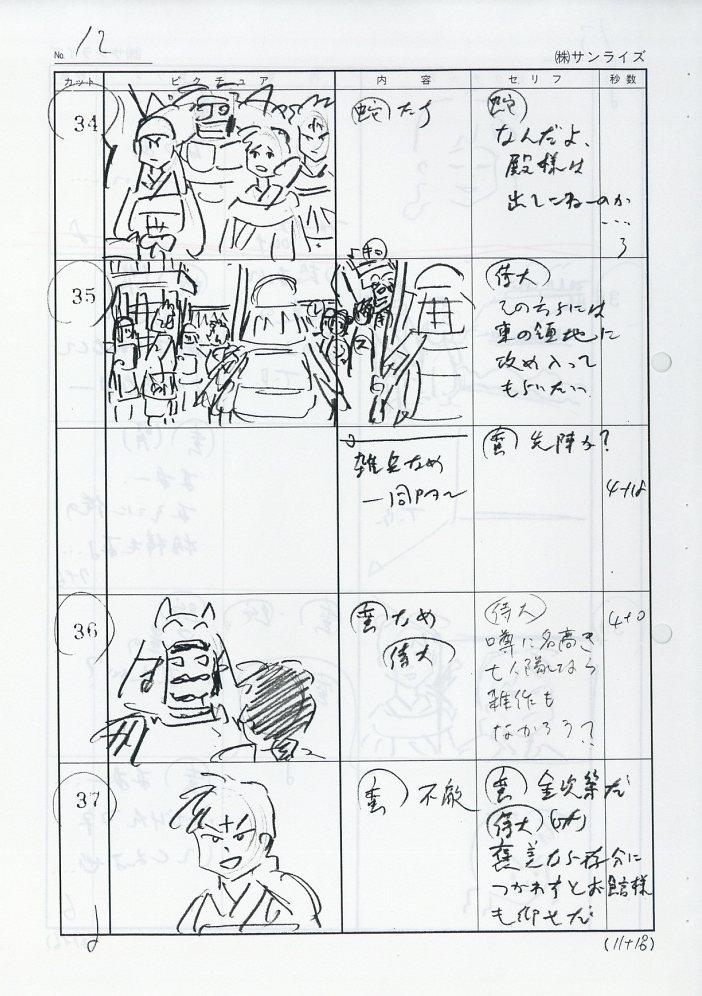 No. 12
(株)サンライズ
カット ピクチュア 内容 セリフ 秒数
34
蛇
蛇
なんだよ、
殿様は
出てこねーのか
…
3
35
侍大
その方らには
東の領地に
攻め入って
もらいたい
雑兵なめ
一同PAN
先陣か?
4+18
36
なめ
侍大
侍大
噂に名高き
七人隊なら
雑作も
なかろう?
4+0
37
不敵
金次第だ
侍大
褒美なら存分に
つかわすとお館様
も仰せだ
(11+18)